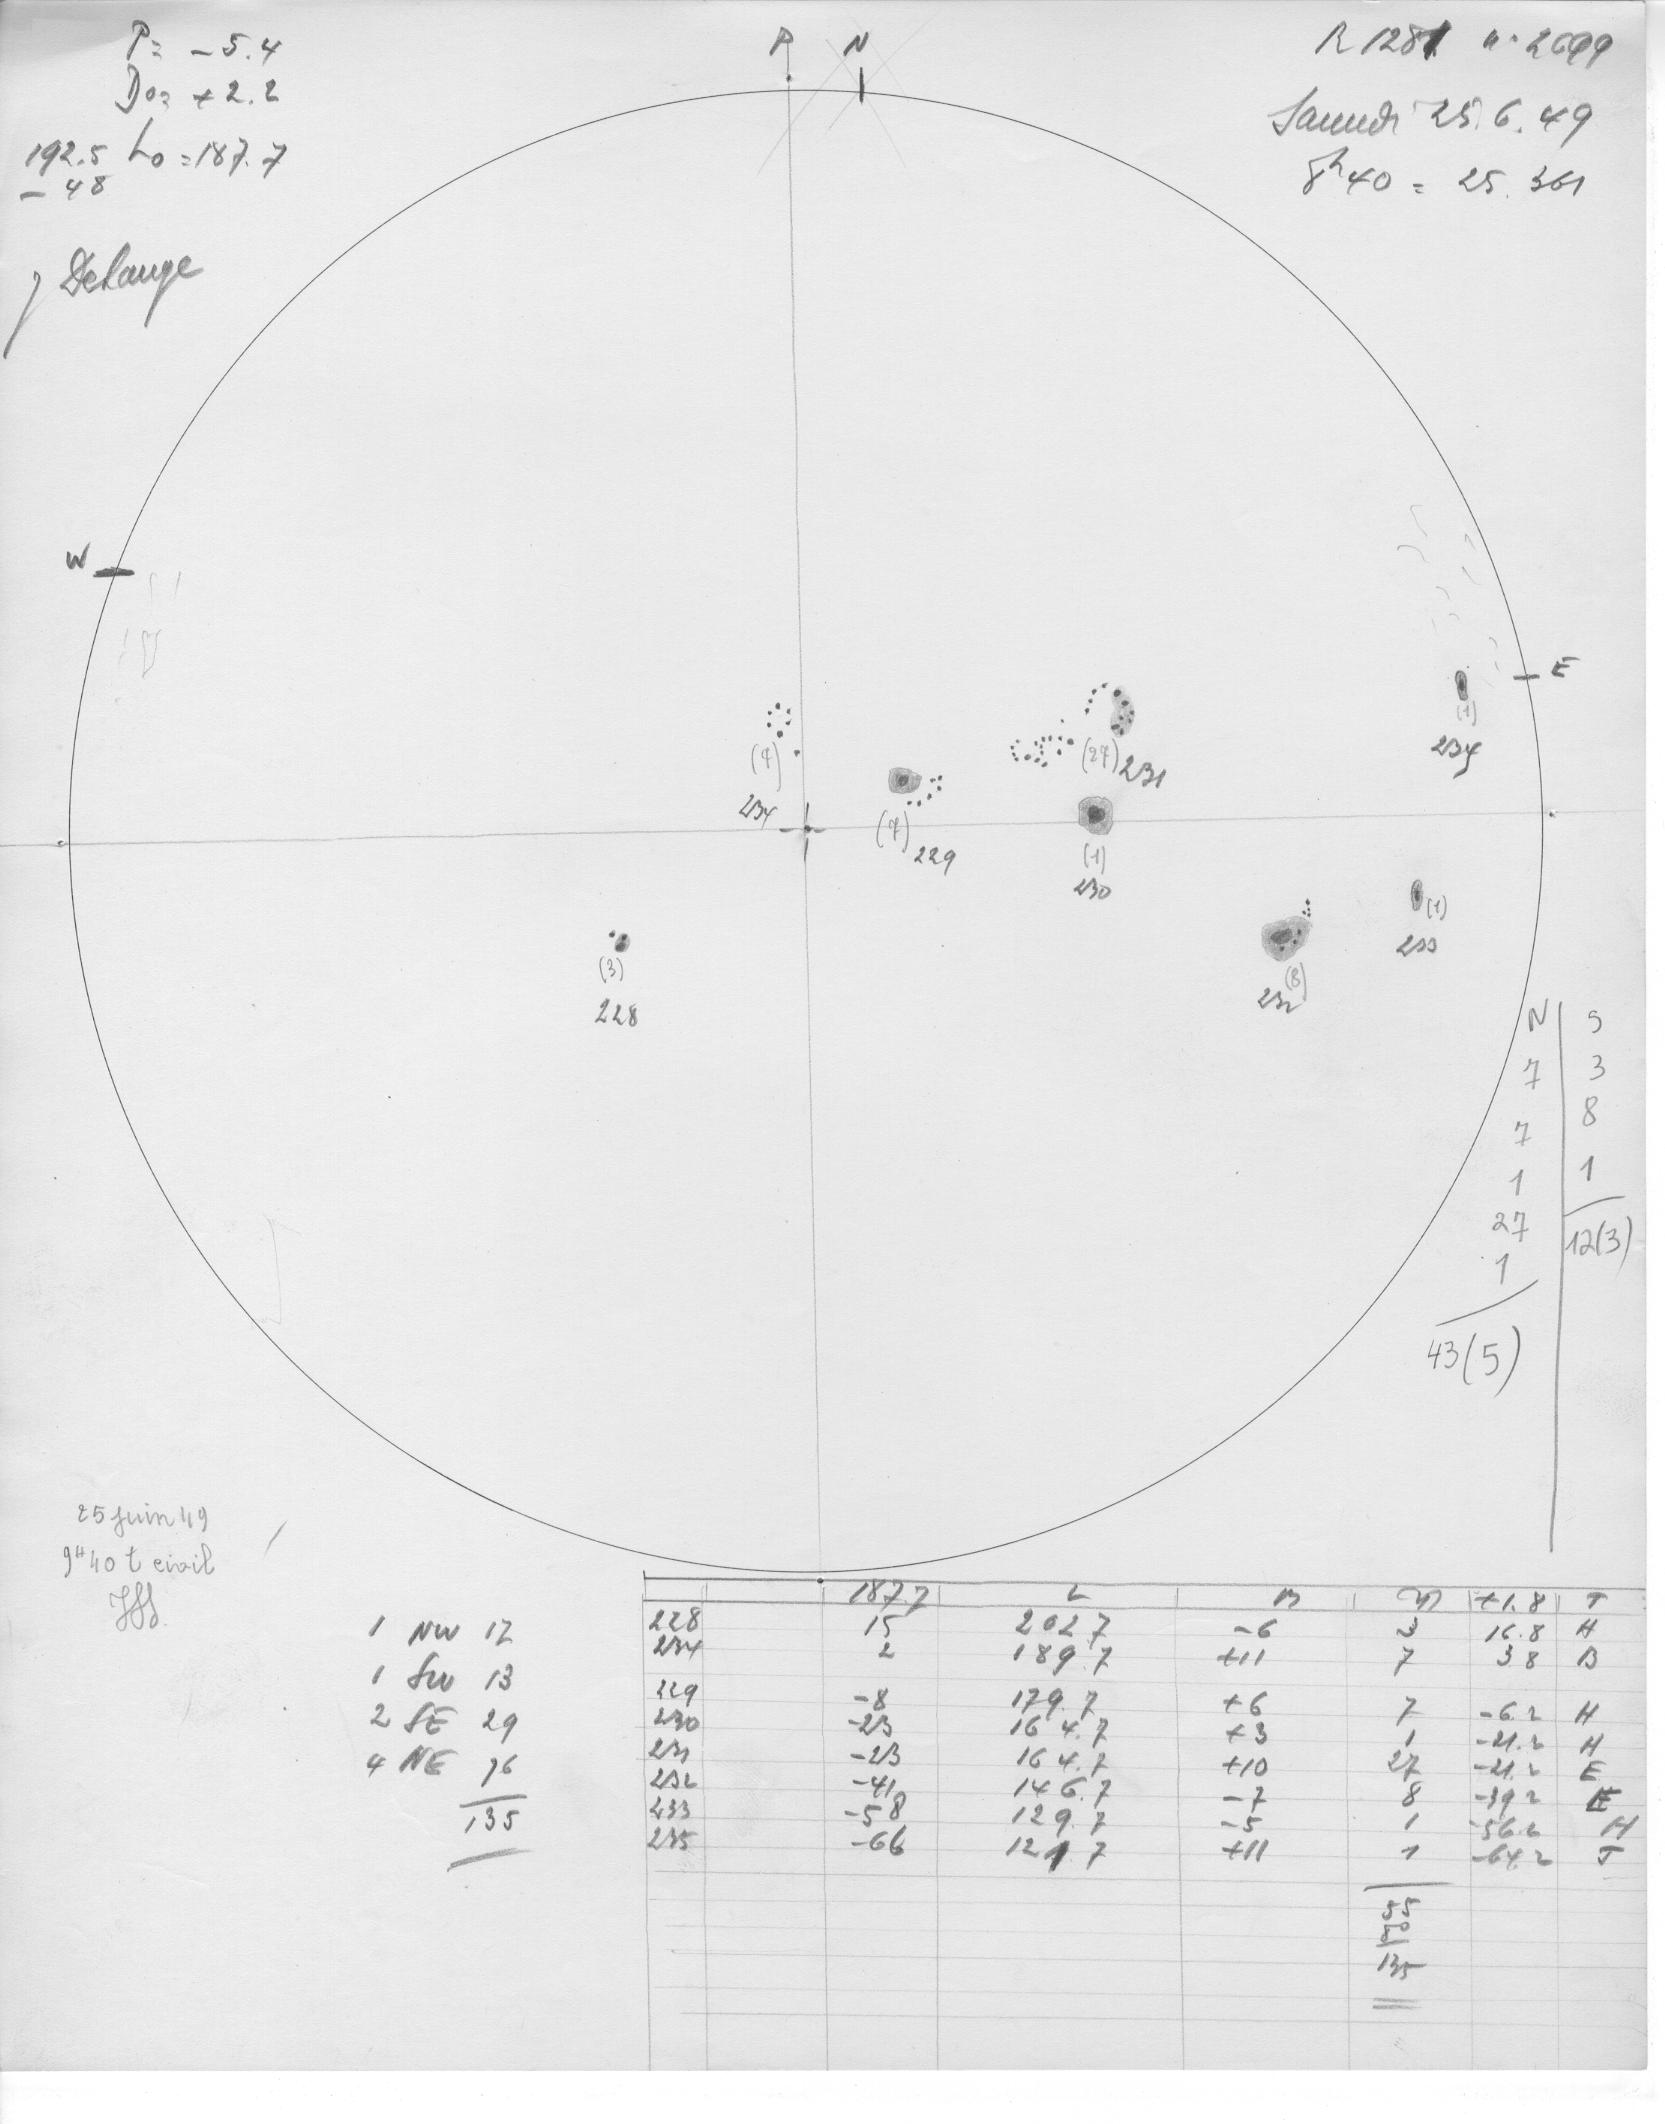 P= -5.4
Do= +2.2
192.5 Lo=187.7
-48
P N
R 1281 n° 2699
Samedi 25.6.49
8h40 = 25.361
J Delauge
W
E
(7)
234
(7)
229
(27) 231
(1)
230
(1)
235
(1)
233
(8)
232
(3)
228
N S
7 3
7 8
1 1
27 12(3)
1
43(5)
25 juin 49
9H40 t civil
1 NW 12
1 SW 13
2 SE 29
4 NE 76
135
187.7 L B +1.8 T
228 15 202.7 -6 3 16.8 H
234 2 189.7 +11 7 3.8 B
229 -8 179.7 +6 7 -6.2 H
230 -23 164.7 +3 1 -21.2 H
231 -23 164.7 +10 27 -21.2 E
232 -41 146.7 -7 8 -39.2 E
233 -58 129.7 -5 1 -56.2 H
235 -66 121.7 +11 1 -64.2 J
55
80
135